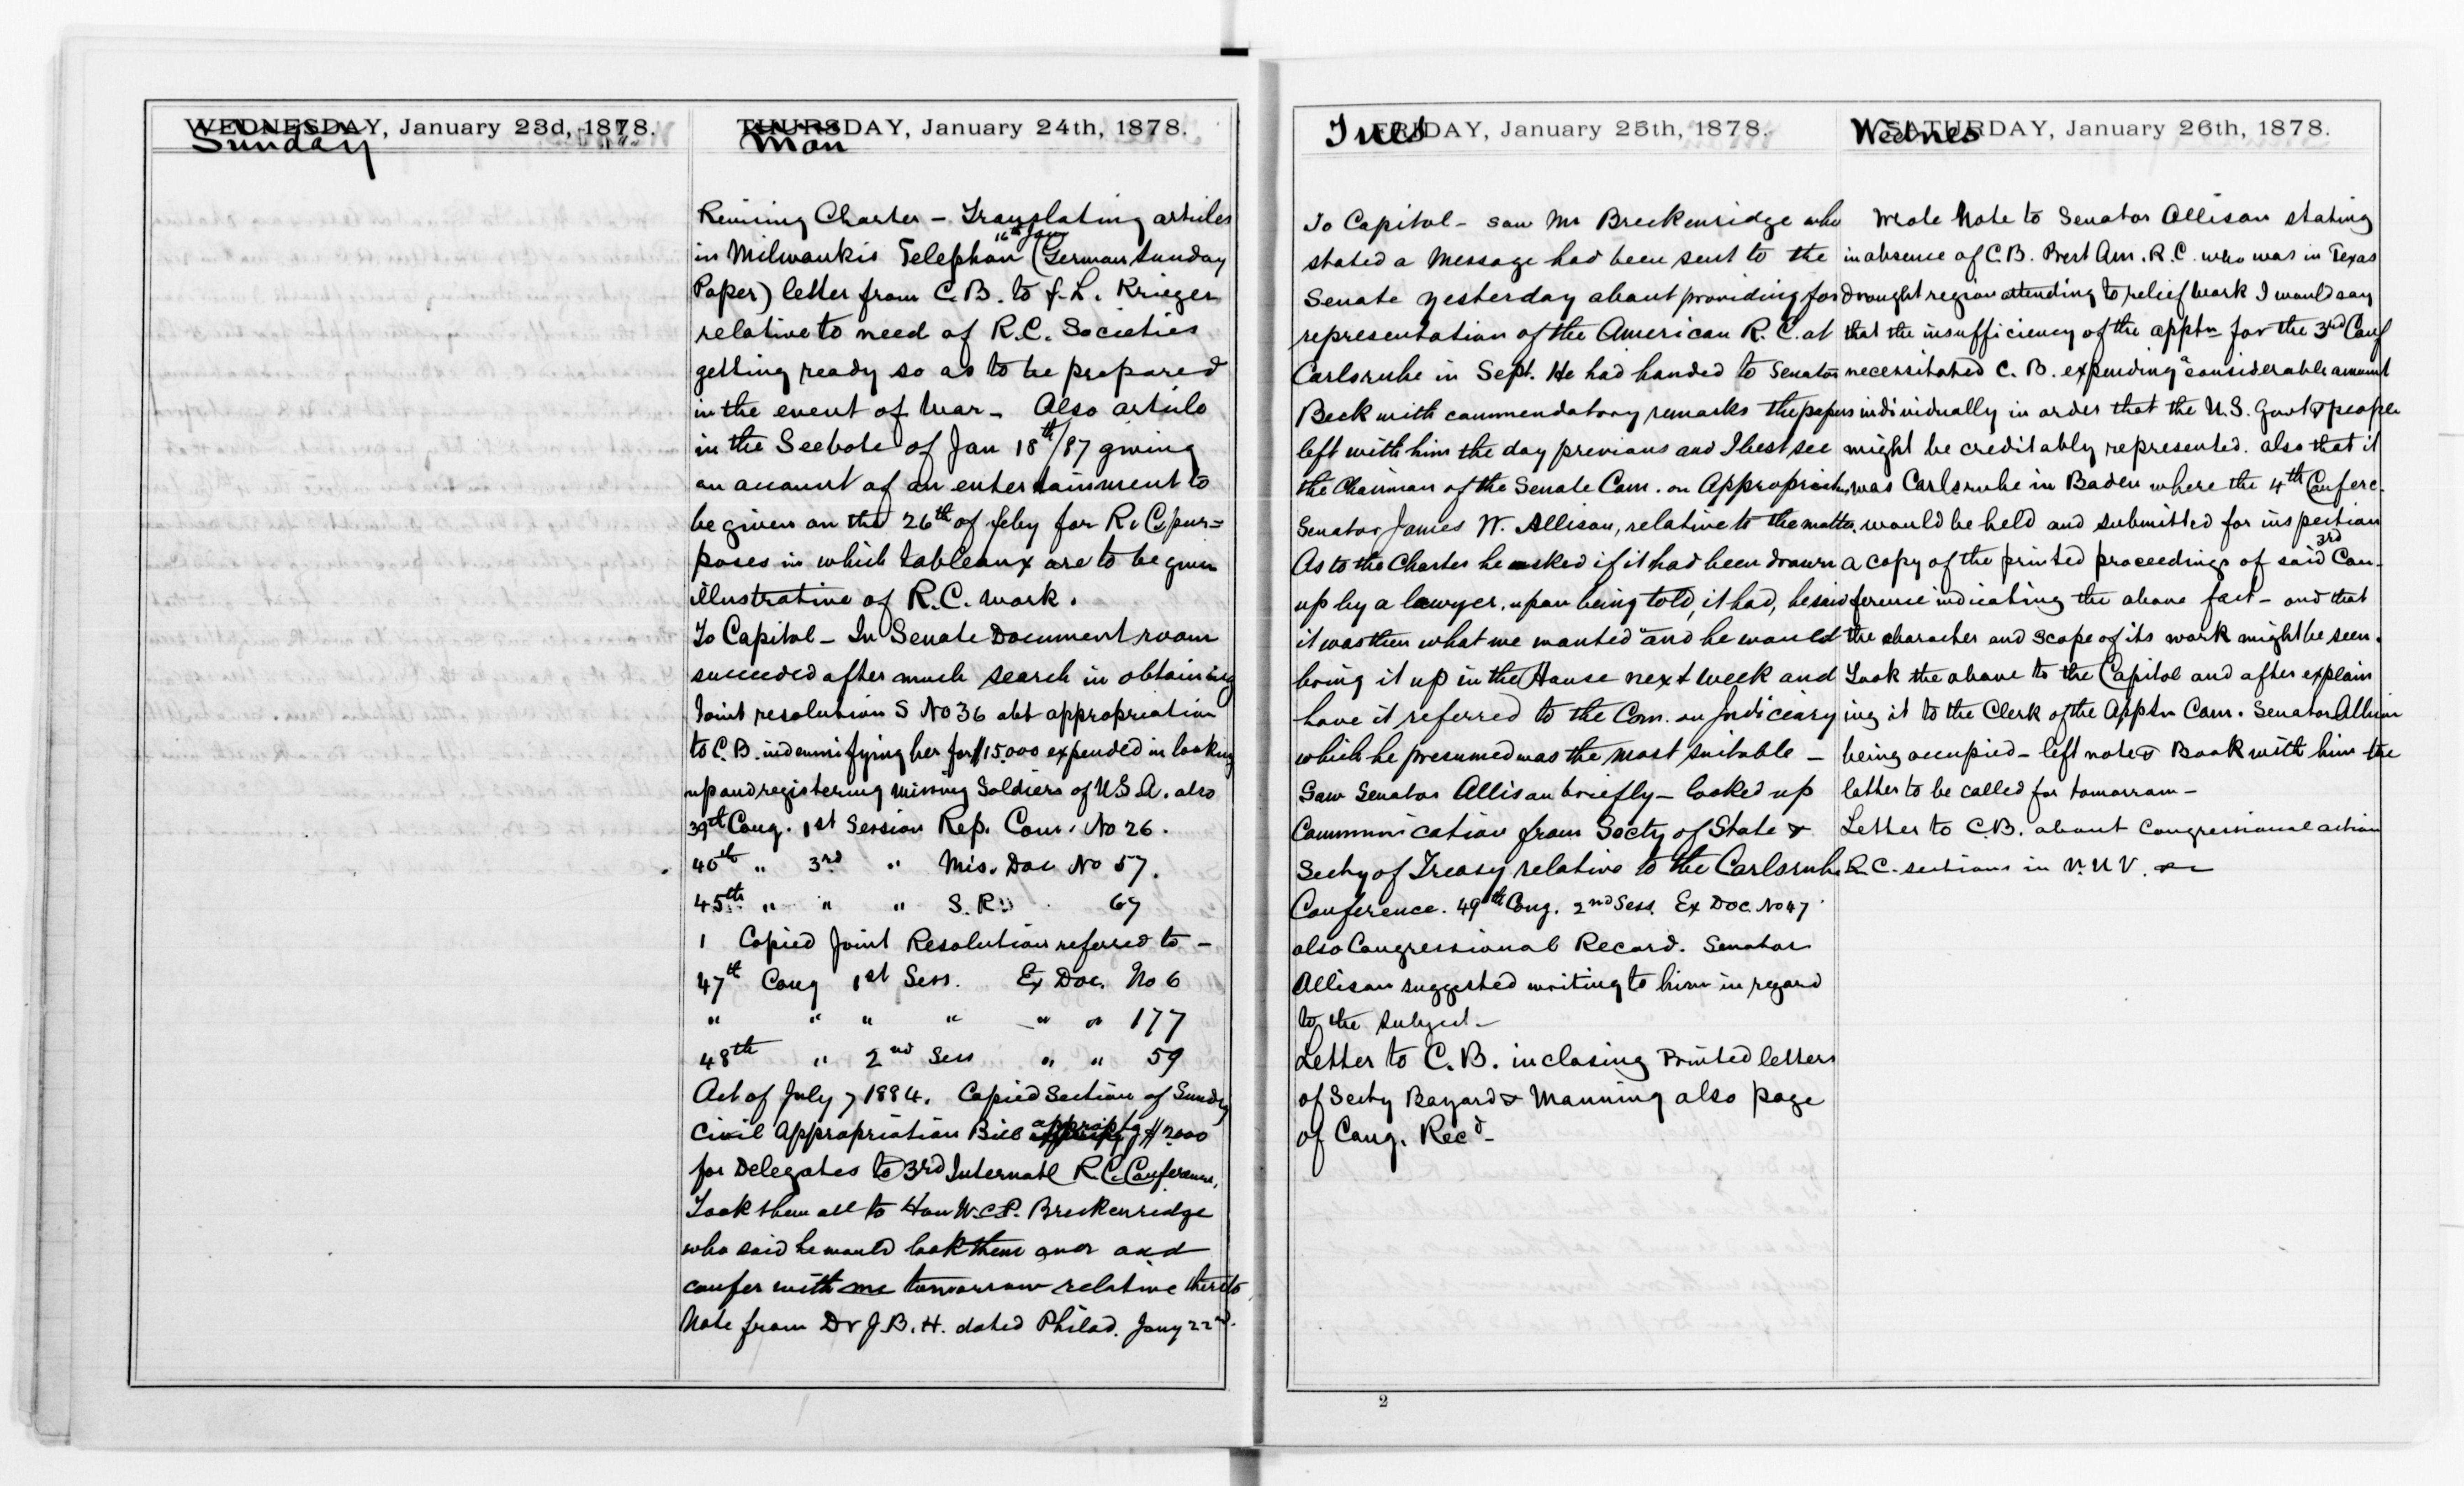 WEDNESDAY, January 23d, 1878.
Sunday
THURSDAY, January 24th, 1878.
Mon
Revising Charter – Translating articles
16th Jany
in Milwaukis Telephon (German Sunday
Paper) letter from C.B. to f. L. Krieger
relative to need of R.C. Societies
getting ready so as to be prepared
in the event of War – Also article
in the Seebote of Jan 18th/87 giving
an account of an entertainment to
be given on the 26th of feby for R.C. pur=
poses in which tableaux are to be given
illustrative of R.C. work.
To Capitol – In Senate Document room
succeeded after much search in obtaining
Joint resolution S No 36 abt appropriation
to C.B. indemnifying her for $15.000 expended in looking
up and registering missing Soldiers of U.S.A. also
39th Cong. 1st Session Rep. Com. No 26.
40th " 3rd " Mis. Doc No 57.
45th " " " S.R. 67
1 Copied Joint Resolution referred to –
47th Cong 1st Sess. Ex Doc. No 6
" " " " " " 177
48th " 2nd Sess " " 59
Act of July 7 1884. Copied Section of Sundry
Civil Appropriation Bill approptg $2000
for Delegates to 3rd Internatl R.C. Conference,
Took them all to Hon W.C.P. Breckenridge
who said he would look them over and
confer with me tomorrow relative thereto
Note from Dr J.B.H. dated Philad. Jany 22nd.
FRIDAY, January 25th, 1878.
Tues
To Capitol – saw Mr Breckenridge who
stated a Message had been sent to the
Senate yesterday about providing for
representation of the American R.C. at
Carlsruhe in Sept. He had handed to Senator
Beck with commendatory remarks the papers
left with him the day previous and I best see
the Chairman of the Senate Com. on Appropriatns
Senator James W. Allison, relative to the matter.
As to the Charter he asked if it had been drawn
up by a lawyer, upon being told, it had, he said
it was then what we wanted and he would
bring it up in the House next week and
have it referred to the Com. on Judiciary
which he presumed was the most suitable –
Saw Senator Allison briefly – looked up
Communication from Secty of State &
Secty of Treasy relative to the Carlsruhe
Conference. 49th Cong. 2nd Sess. Ex Doc. No 47
also Congressional Record. Senator
Allison suggested writing to him in regard
to the subject –
Letter to C.B. inclosing Printed letters
of Secty Bayard & Manning also page
of Cong. Recd –
SATURDAY, January 26th, 1878.
Wednes
Wrote Note to Senator Allison stating
in absence of C.B. Prest Am. R.C. who was in Texas
drought region attending to relief work I would say
that the insufficiency of the apptn for the 3rd Conf
necessitated C.B. expending a considerable amount
individually in order that the U.S. Govt & people
might be creditably represented. also that it
was Carlsruhe in Baden where the 4th Conferc.
would be held and submitted for inspection
3rd
a copy of the printed proceedings of said Con-
ference indicating the above fact – and that
the character and scope of its work might be seen.
Took the above to the Capitol and after explain
ing it to the Clerk of the Apptn Com. Senator Allison
being occupied – left note & Book with him the
latter to be called for tomorrow –
Letter to C.B. about Congressional action
R.C. sections in V.U.V. &c
2